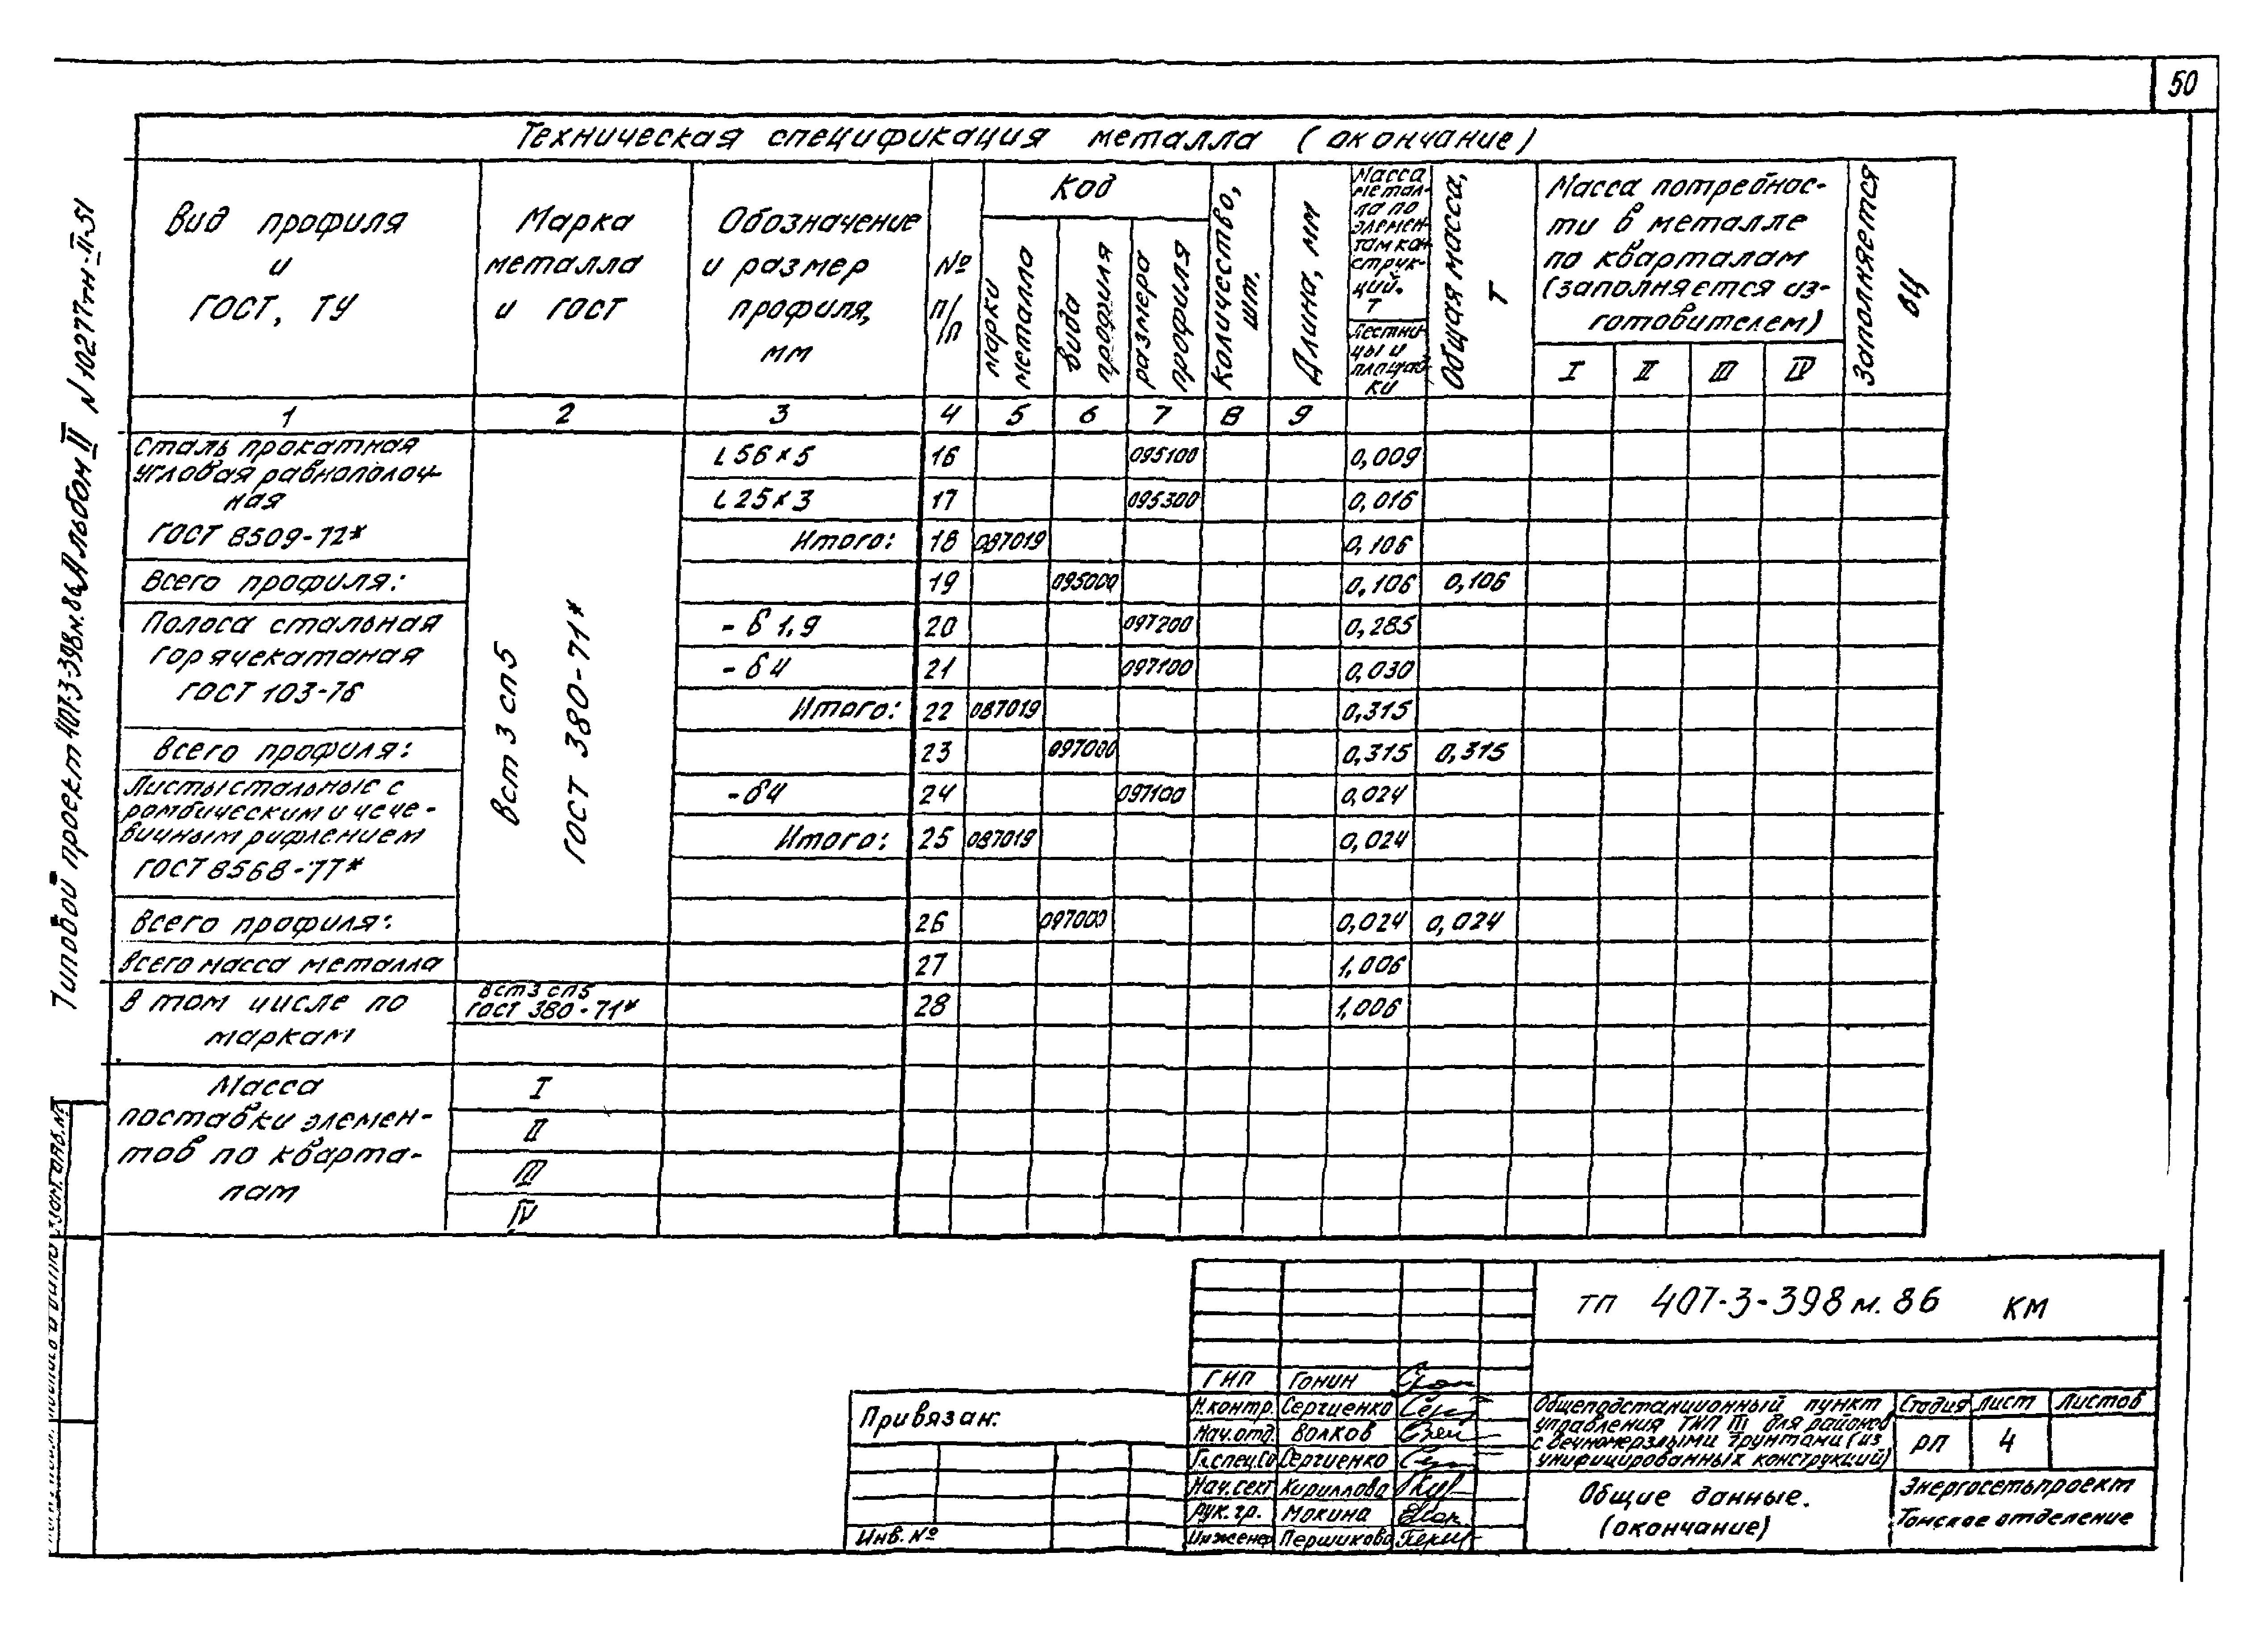 50
Техническая спецификация металла (окончание)
Вид профиля и ГОСТ, ТУ
Марка металла и ГОСТ
Обозначение и размер профиля, мм
№ п/п
Код
марки металла
вида профиля
размера профиля
Количество, шт.
Длина, мм
Масса металла по элементам конструкций, т
Лестницы и площадки
Общая масса, т
Масса потребности в металле по кварталам (заполняется изготовителем)
I II III IV
Заполняется ВЦ
1 2 3 4 5 6 7 8 9
Сталь прокатная
угловая равнополоч-
ная
ГОСТ 8509-72*
Вст 3 сп5
ГОСТ 380-71*
L 56 x 5 16 095100 0,009
L 25 x 3 17 095300 0,016
Итого: 18 087019 0,106
Всего профиля: 19 095000 0,106 0,106
Полоса стальная
горячекатаная
ГОСТ 103-76
- б 1,9 20 097200 0,285
- б 4 21 097100 0,030
Итого: 22 087019 0,315
Всего профиля: 23 097000 0,315 0,315
Листы стальные с
ромбическим и чече-
вичным рифлением
ГОСТ 8568-77*
- б 4 24 097100 0,024
Итого: 25 087019 0,024
Всего профиля: 26 097000 0,024 0,024
Всего масса металла 27 1,006
В том числе по
маркам
Вст3 сп5
ГОСТ 380-71*
28 1,006
Масса
поставки элемен-
тов по кварта-
лам
I
II
III
IV
Типовой проект 407-3-398м.86 Альбом II N 10277тм-II-51
Взам. инв. №
ТП 407-3-398м.86 КМ
ГИП Гонин
Н.контр. Сергиенко
Нач.отд. Волков
Гл.спец. Сергиенко
Нач.сект Кириллова
Рук. гр. Мокина
Инженер Першикова
Привязан:
Инв. №
Общеподстанционный пункт
управления тип III для районов
с вечномерзлыми грунтами (из
унифицированных конструкций)
Стадия Лист Листов
РП 4
Общие данные.
(окончание)
Энергосетьпроект
Томское отделение